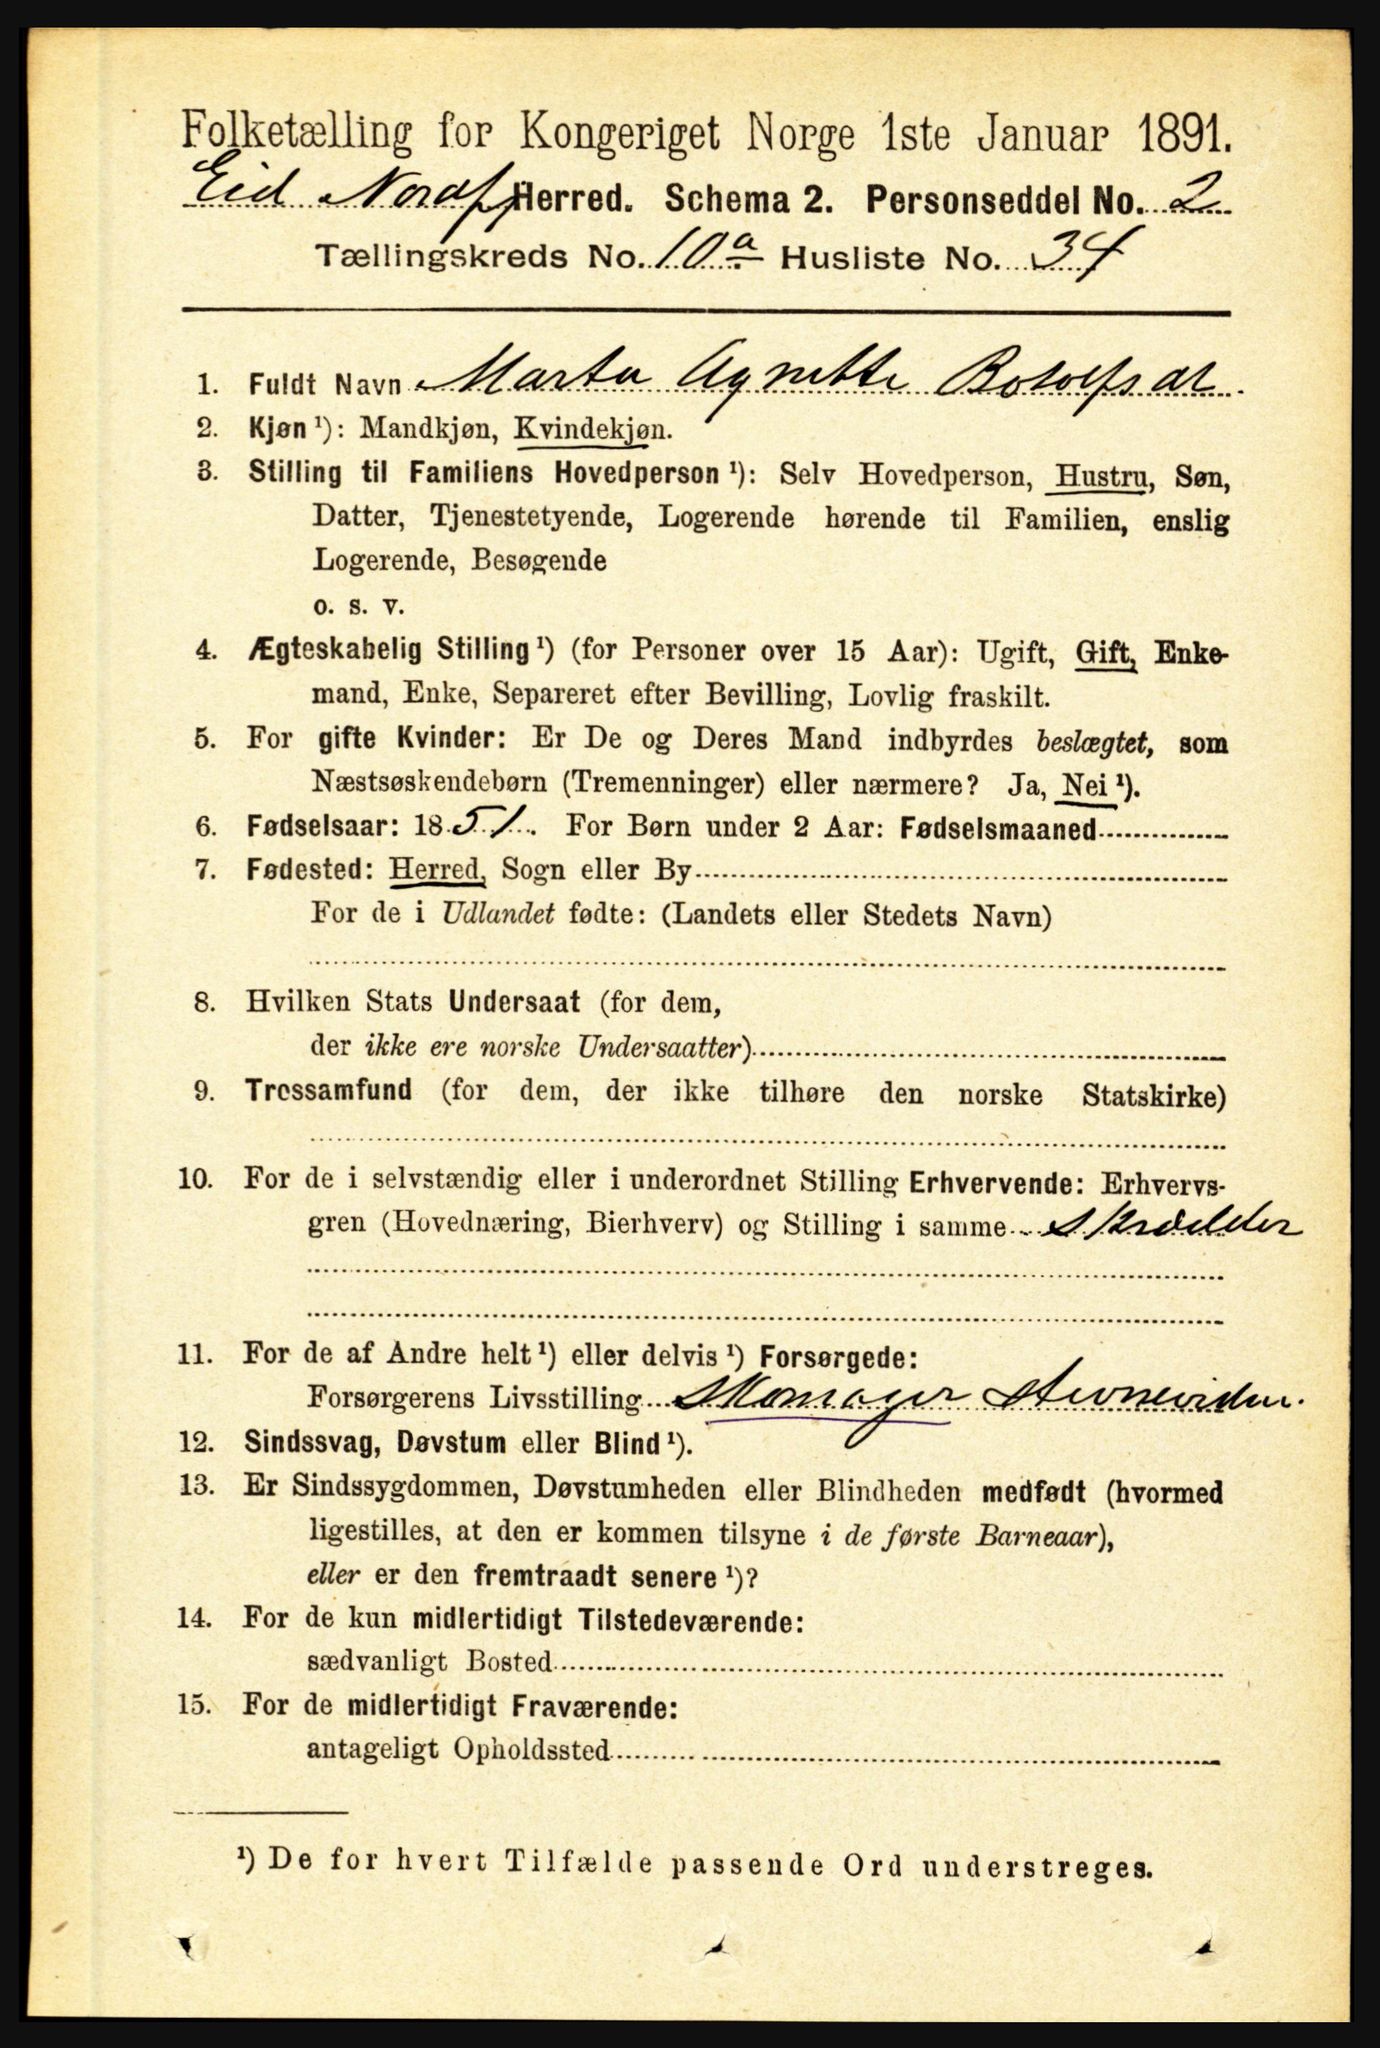 Folketælling for Kongeriget Norge 1ste Januar 1891.
Eid Nordfj Herred. Schema 2. Personseddel No. 2
Tællingskreds No. 10a Husliste No. 34
1. Fuldt Navn Marta Agnette Botolfsdt.
2. Kjøn ¹): Mandkjøn, Kvindekjøn.
3. Stilling til Familiens Hovedperson ¹): Selv Hovedperson, Hustru, Søn,
Datter, Tjenestetyende, Logerende hørende til Familien, enslig
Logerende, Besøgende
o. s. v.
4. Ægteskabelig Stilling ¹) (for Personer over 15 Aar): Ugift, Gift, Enke-
mand, Enke, Separeret efter Bevilling, Lovlig fraskilt.
5. For gifte Kvinder: Er De og Deres Mand indbyrdes beslægtet, som
Næstsøskendebørn (Tremenninger) eller nærmere? Ja, Nei ¹).
6. Fødselsaar: 1851. For Børn under 2 Aar: Fødselsmaaned
7. Fødested: Herred, Sogn eller By
For de i Udlandet fødte: (Landets eller Stedets Navn)
8. Hvilken Stats Undersaat (for dem,
der ikke ere norske Undersaatter)
9. Trossamfund (for dem, der ikke tilhøre den norske Statskirke)
10. For de i selvstændig eller i underordnet Stilling Erhvervende: Erhvervs-
gren (Hovednæring, Bierhverv) og Stilling i samme
11. For de af Andre helt ¹) eller delvis ¹) Forsørgede:
Forsørgerens Livsstilling Skomager
12. Sindssvag, Døvstum eller Blind ¹).
13. Er Sindssygdommen, Døvstumheden eller Blindheden medfødt (hvormed
ligestilles, at den er kommen tilsyne i de første Barneaar),
eller er den fremtraadt senere ¹)?
14. For de kun midlertidigt Tilstedeværende:
sædvanligt Bosted
15. For de midlertidigt Fraværende:
antageligt Opholdssted
¹) De for hvert Tilfælde passende Ord understreges.